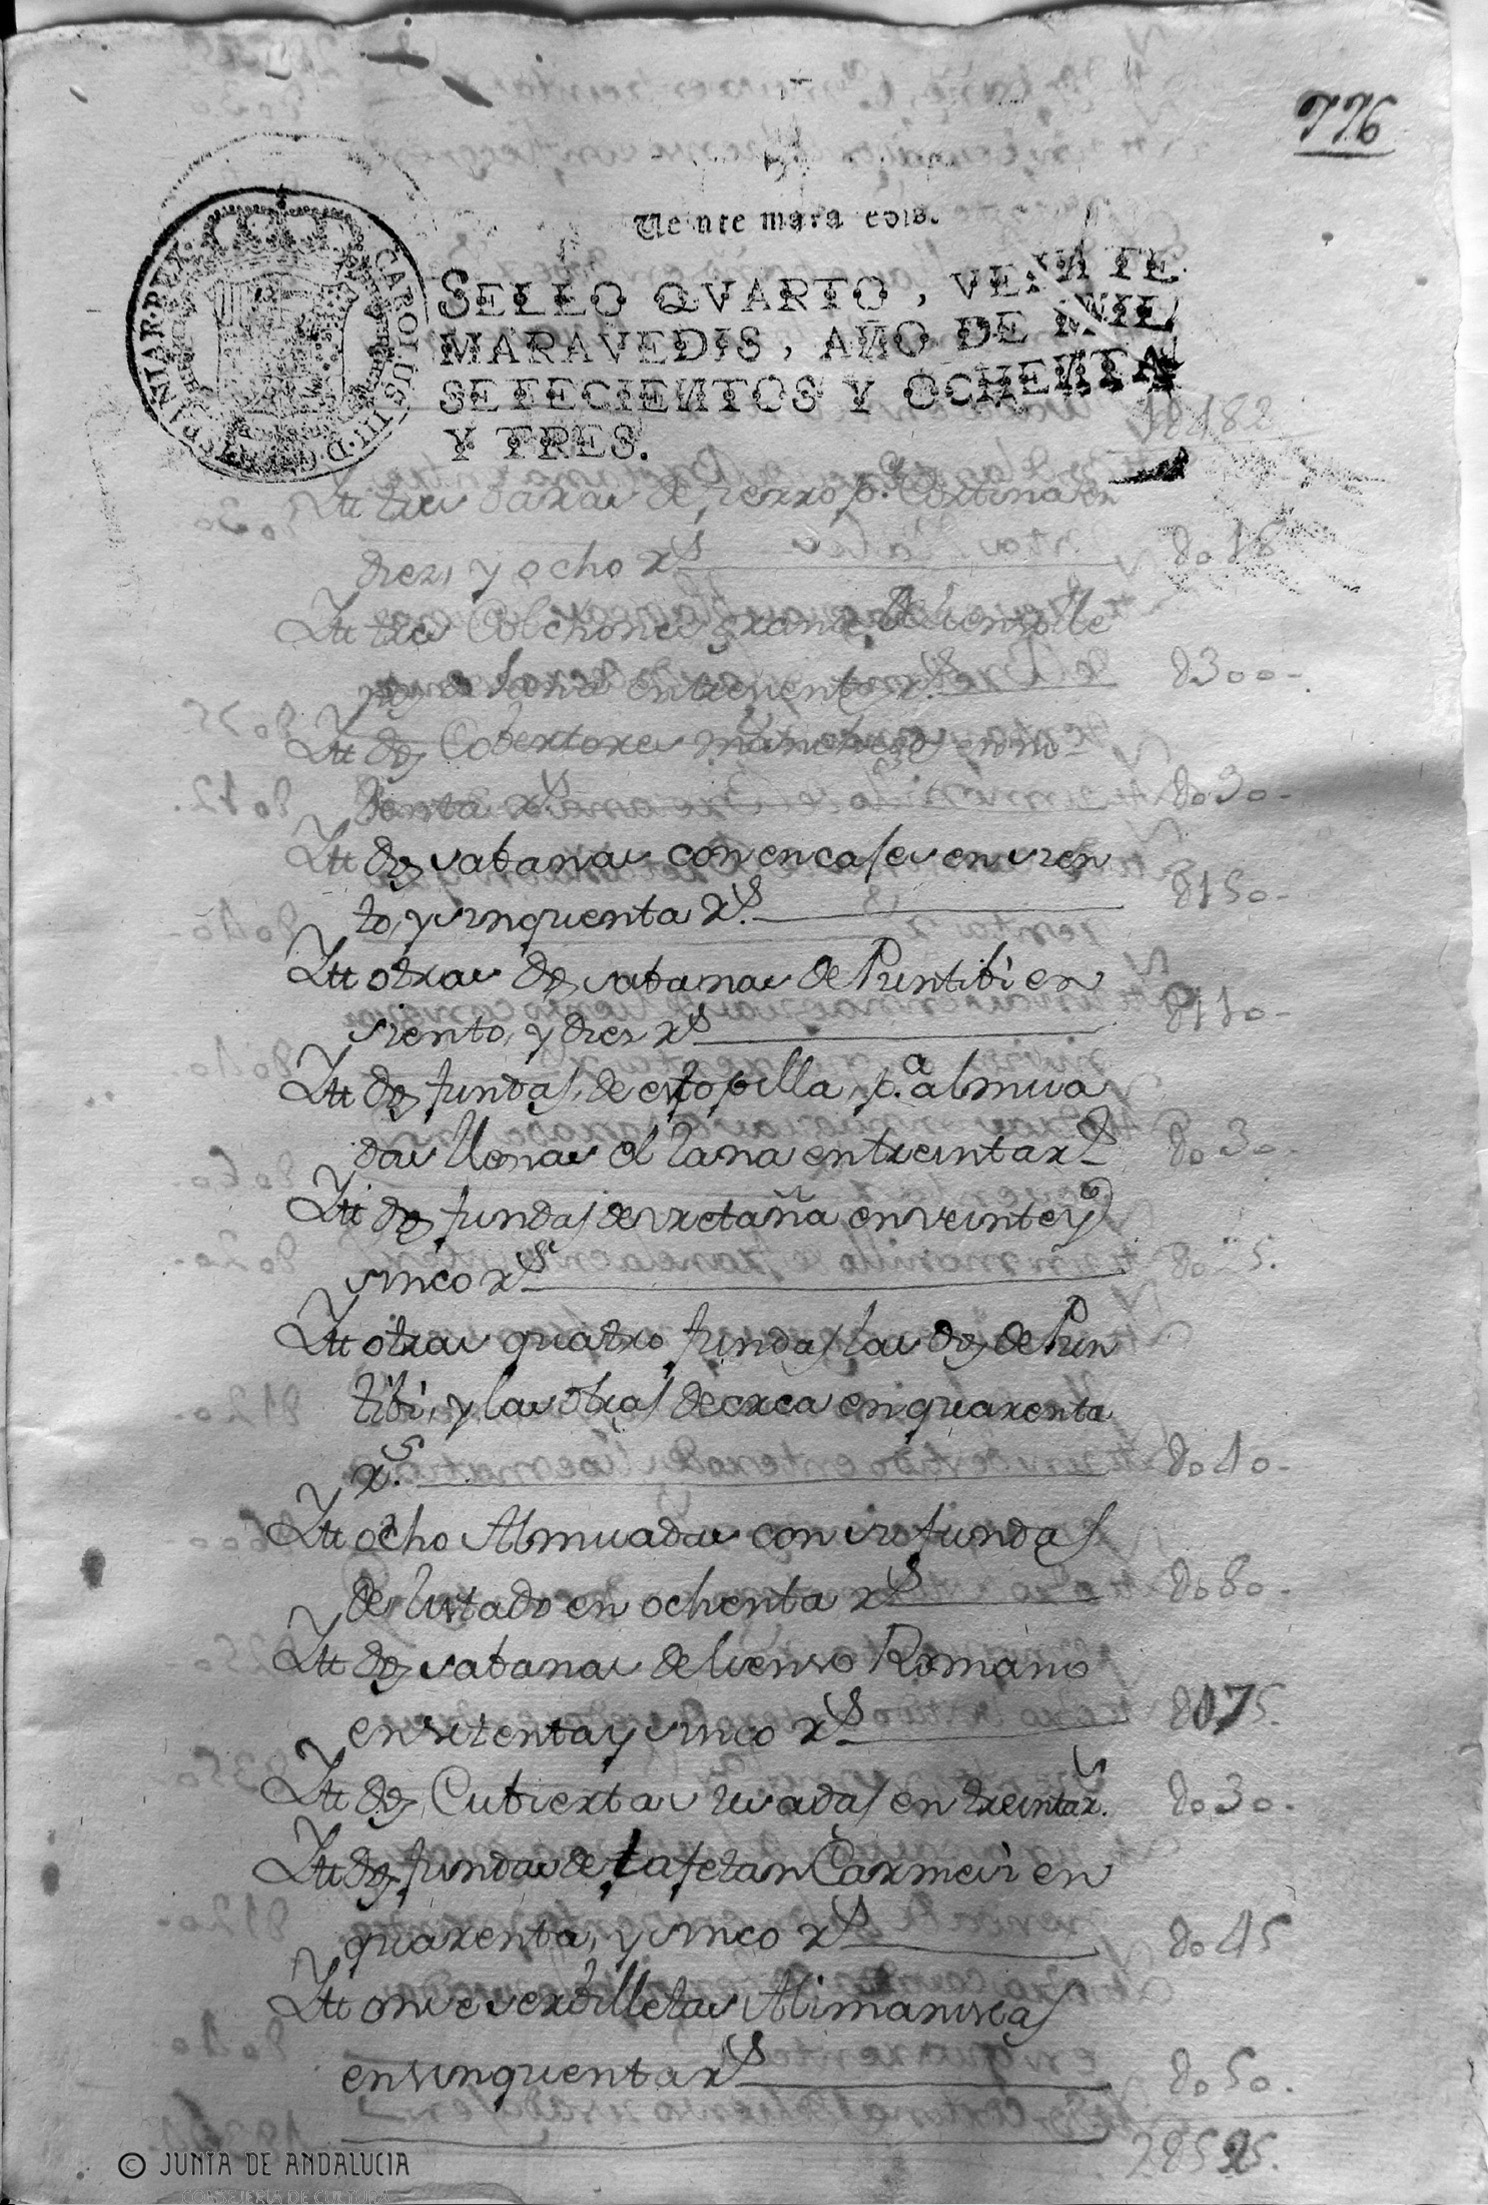 776
Veinte maravedis.
CAROLUS III D G HISPANIAR REX
SELLO QVARTO, VEINTE
MARAVEDIS, AÑO DE MIL
SETECIENTOS Y OCHENTA
Y TRES.
Itt tres varas de fierro p.ª Cortina en
diez, y ocho r.s 8018
Itt tres Colchones de lienzo
lana en trecientos r.s 8300-
Itt dos Cobertores manchegos en no
benta r.s 8090-
Itt dos sabanas con encajes en sien
to, y sinquenta r.s 8150-
Itt otras dos sabanas de Puntibi en
siento, y dies r.s 8110-
Itt dos fundas de estopilla p.ª almua
das llenas de lana en treinta r.s 8030-
Itt dos fundas de vretaña en veinte y
sinco r.s 8025.
Itt otras quatro fundas las dos de Pun
tibi, y las otras de crea en quarenta
r.s 8040-
Itt ocho Almuadas con sus fundas
de listado en ochenta r.s 8080-
Itt dos sabanas de lienso Romano
en setenta y sinco r.s 8075.
Itt dos Cubiertas usadas en treinta r.s 8030-
Itt dos fundas de tafetan Carmesi en
quarenta, y sinco r.s 8045
Itt onse serbilletas Alimaniscas
en sinquenta r.s 8050.
© JUNTA DE ANDALUCIA
CONSEJERÍA DE CULTURA